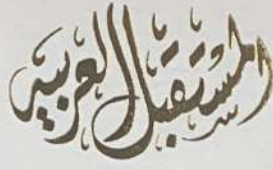 المستقبل العربي